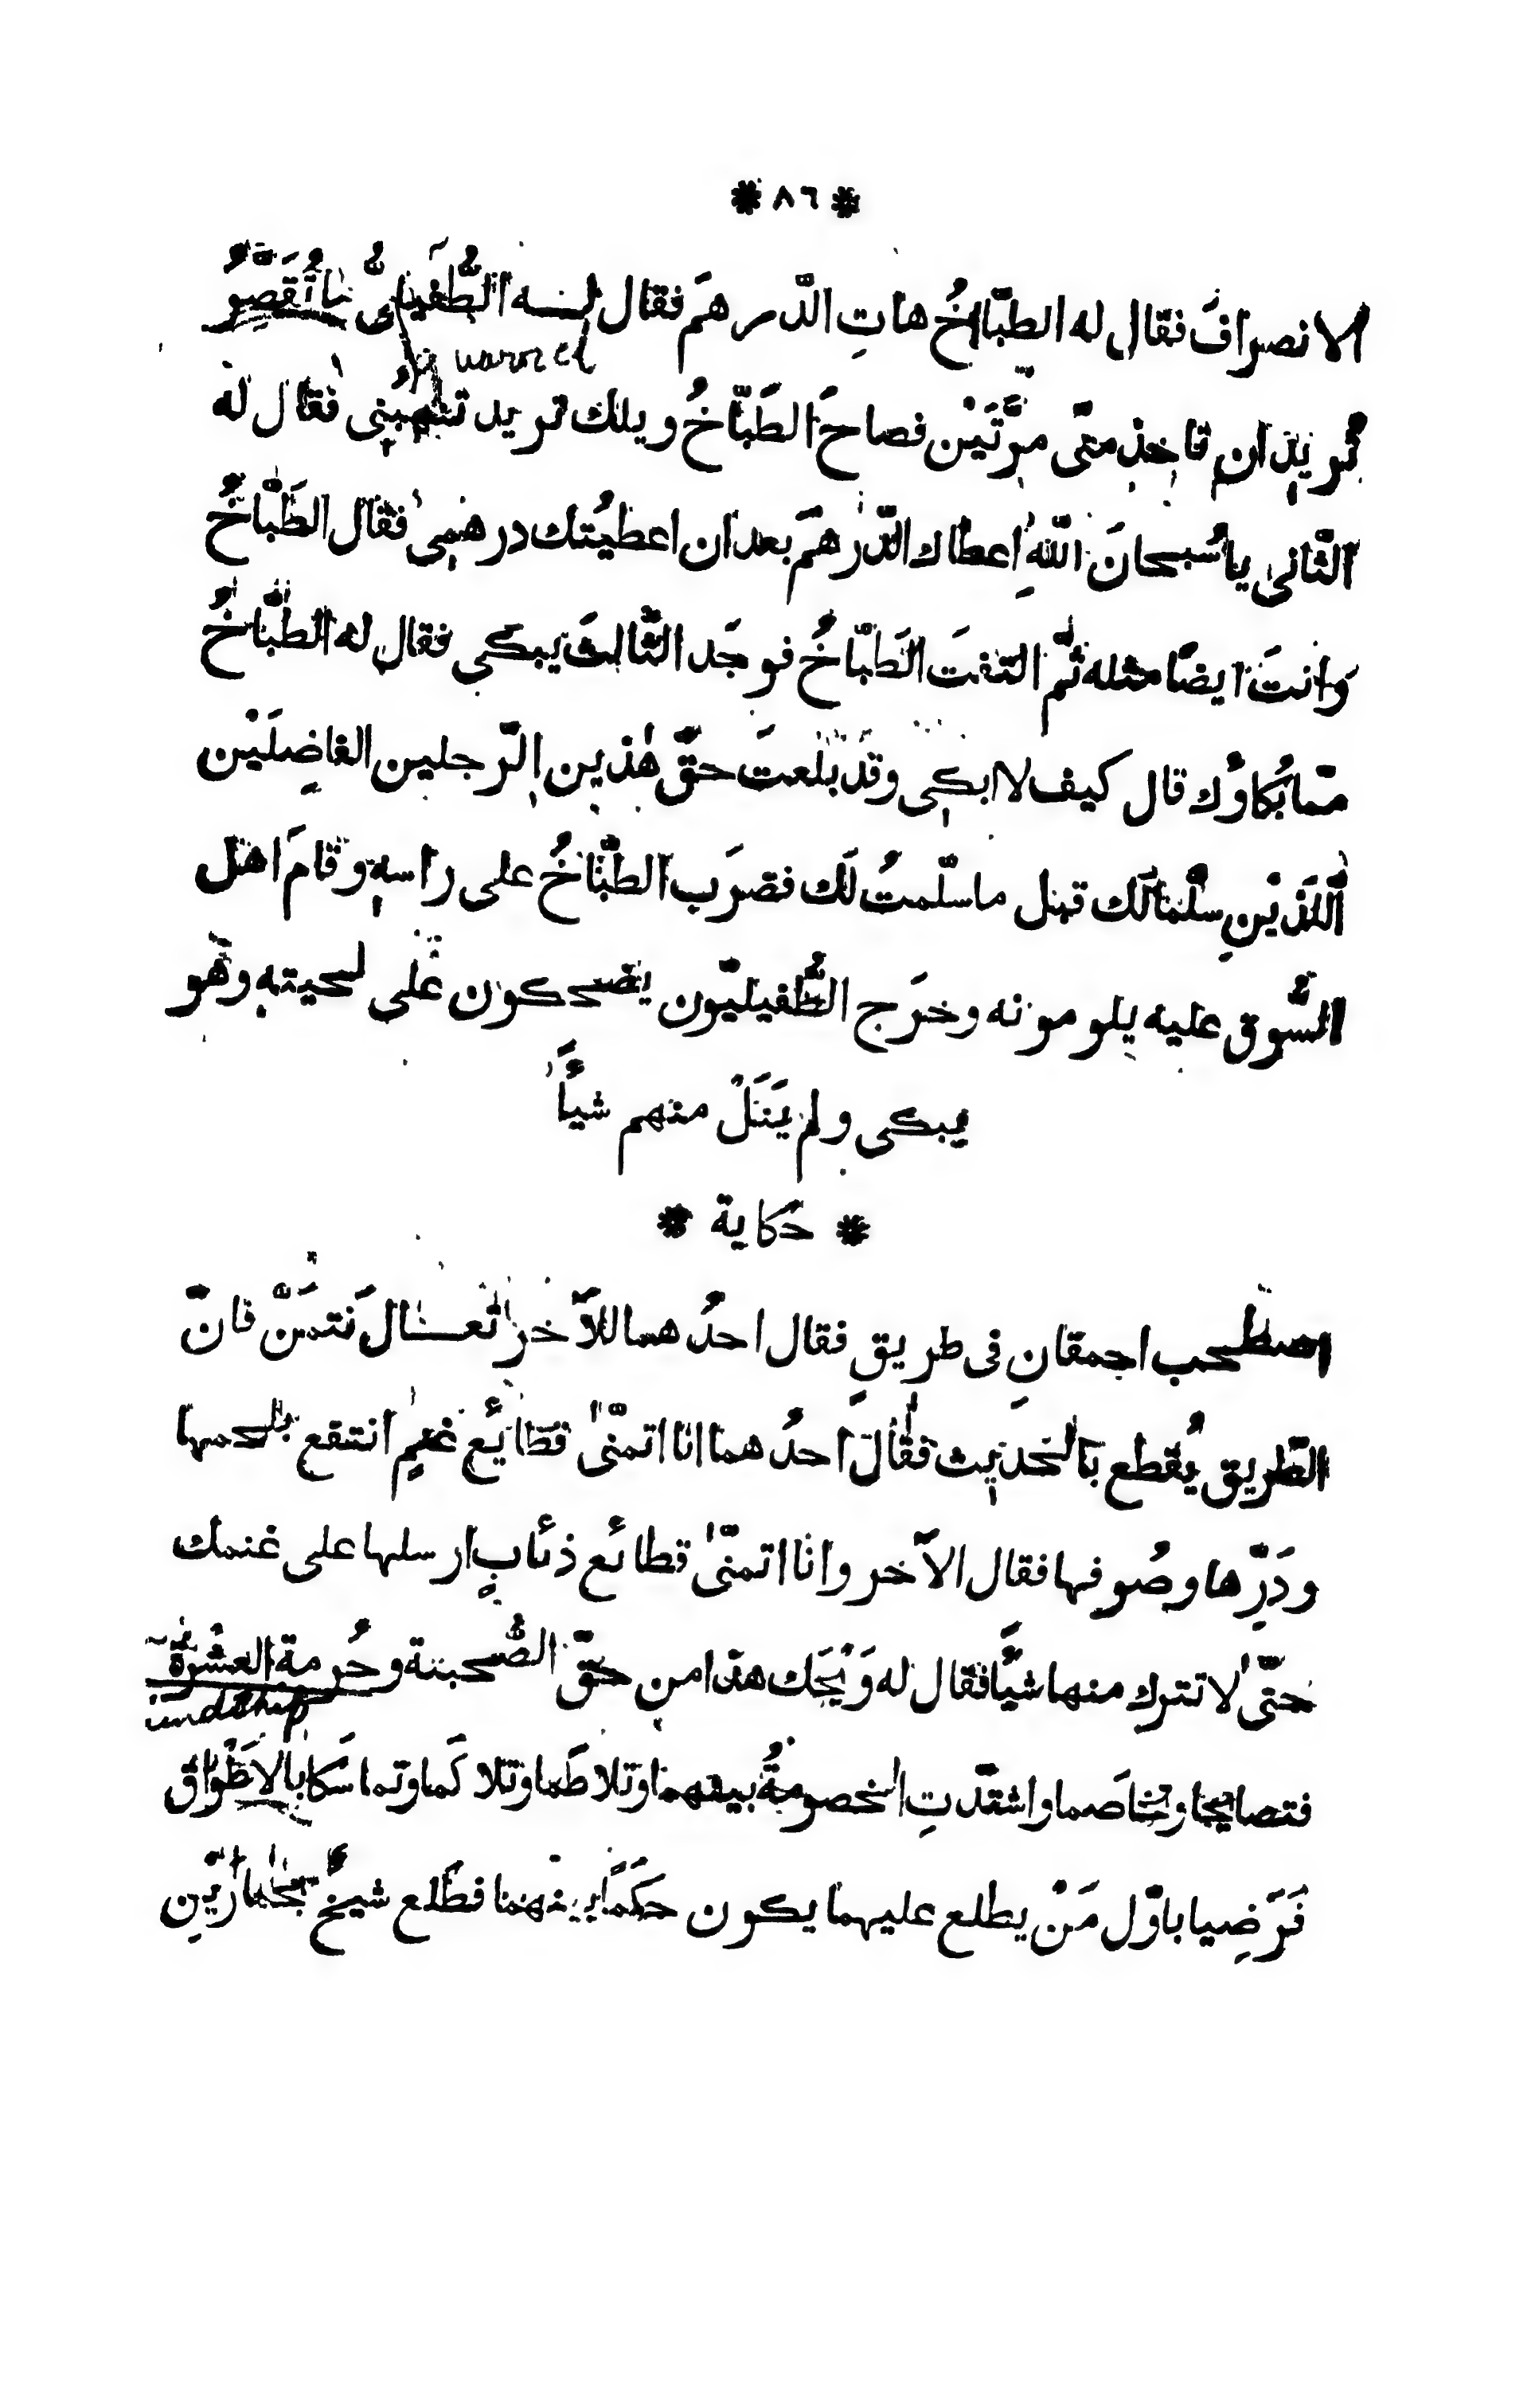 * ٨٦ *
الانصرافَ فقال له الطبّاخُ هاتِ الدّرهمَ فقال لـه الطُّفيلىُّ
تريد ان تاخذ منّى مرَّتَيْن فصاحَ الطَبّاخُ ويلك تريد تنهبُنى فقال له
الثّانى يا سُبحانَ اللّهِ اعطاك الدّرهمَ بعد ان اعطيُتك درهمى فقال الطَبّاخُ
وانتَ ايضًا مثله ثمّ التفتَ الطَبّاخُ فوجَد الثّالثَ يبكى فقال له الطبّاخُ
ممّا بُكاوُك قال كيف لا ابكى وقَد بلعتَ حقّ هٰذين الرّجلين الفاضِلَيْن
اللّذَيْنِ سلّما لَك قبل ما سلّمتُ لَك فضرَب الطبّاخُ على راسهِ وقامَ اهل
السُّوق عليه يلومونه وخرَج الطُّفيليّون يضحكون على لحيتهِ وهُو
يبكى ولم يَنَلْ منهم شيأً
* حَكاية *
اصطحب احمقانِ فى طريقٍ فقال احدُهما للآخر تعـالَ نَتمَنَّ فانّ
الطّريق يُقطع بالحديث فقالَ احدُهما انا اتمنّىٰ قطائع غنمٍ انتفع بلحمها
ودَرِّها وصُوفها فقال الآخر وانا اتمنّىٰ قطائع ذئابٍ ارسلها على غنمك
حتّىٰ لا تترك منها شئًا فقال له وَيْحَك هذا من حقّ الصُّحبة وحُرمة العشْرة
indship
فتصايحا وتخاصَما واشتدّتِ الخصومةُ بينهما وتلاطَما وتلاكَما وتماسَكا بالاَطْواق
فَرَضِيا باوّل مَنْ يطلع عليهما يكون حَكَمًا بينهما فطَلع شيخٌ بحمارَيْنِ